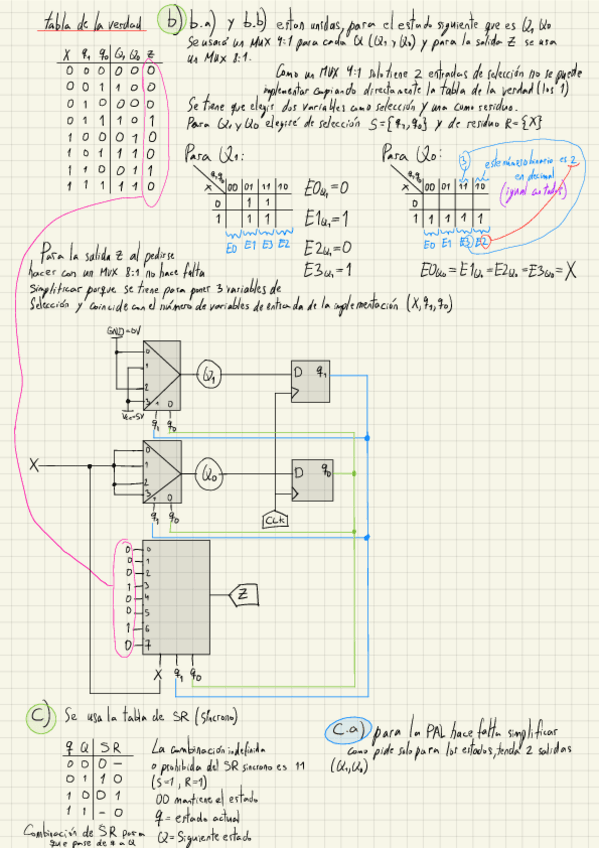 tabla de la verdad
X q1 q0 Q1 Q0 Z
0 0 0 0 0 0
0 0 1 1 0 0
0 1 0 0 0 0
0 1 1 1 0 1
1 0 0 0 1 0
1 0 1 1 1 0
1 1 0 0 1 1
1 1 1 1 1 0
b) b.a) y b.b) estan unidas, para el estado siguiente que es Q1 Q0
Se usará un MUX 4:1 para cada Q (Q1 y Q0) y para la salida Z se usa
un MUX 8:1.
Como un MUX 4:1 solo tiene 2 entradas de selección no se puede
implementar copiando directamente la tabla de la verdad (los 1)
Se tiene que elegir dos variables como selección y una como residuo.
Para Q1 y Q0 elegiré de selección S={q1,q0} y de residuo R={X}
Para Q1:
q1q0
X 00 01 11 10
0 1 1
1 1 1
E0 E1 E3 E2
E0Q1=0
E1Q1=1
E2Q1=0
E3Q1=1
Para Q0:
q1q0
X 00 01 11 10
0
1 1 1 1 1
E0 E1 E3 E2
3
este número binario es 2
en decimal
(igual con todos)
E0Q0=E1Q0=E2Q0=E3Q0=X
Para la salida Z al pedirse
hacer con un MUX 8:1 no hace falta
simplificar porque se tiene para poner 3 variables de
Selección y coincide con el número de variables de entrada de la implementación (X,q1,q0)
GND=0V
0
1
2
3
1 0
Vcc=5V
q1 q0
Q1
D q1
X
0
1
2
3
1 0
q1 q0
Q0
D q0
CLK
0 0
0 1
0 2
1 3
0 4
0 5
1 6
0 7
Z
X q1 q0
c) Se usa la tabla de SR (síncrono)
q Q S R
0 0 0 -
0 1 1 0
1 0 0 1
1 1 - 0
Combinación de SR para
que pase de q a Q
La combinación indefinida
o prohibida del SR sincrono es 11
(S=1, R=1)
00 mantiene el estado
q = estado actual
Q = Siguiente estado
c.a) para la PAL hace falta simplificar
como pide solo para los estados, tendá 2 salidas
(Q1,Q0)